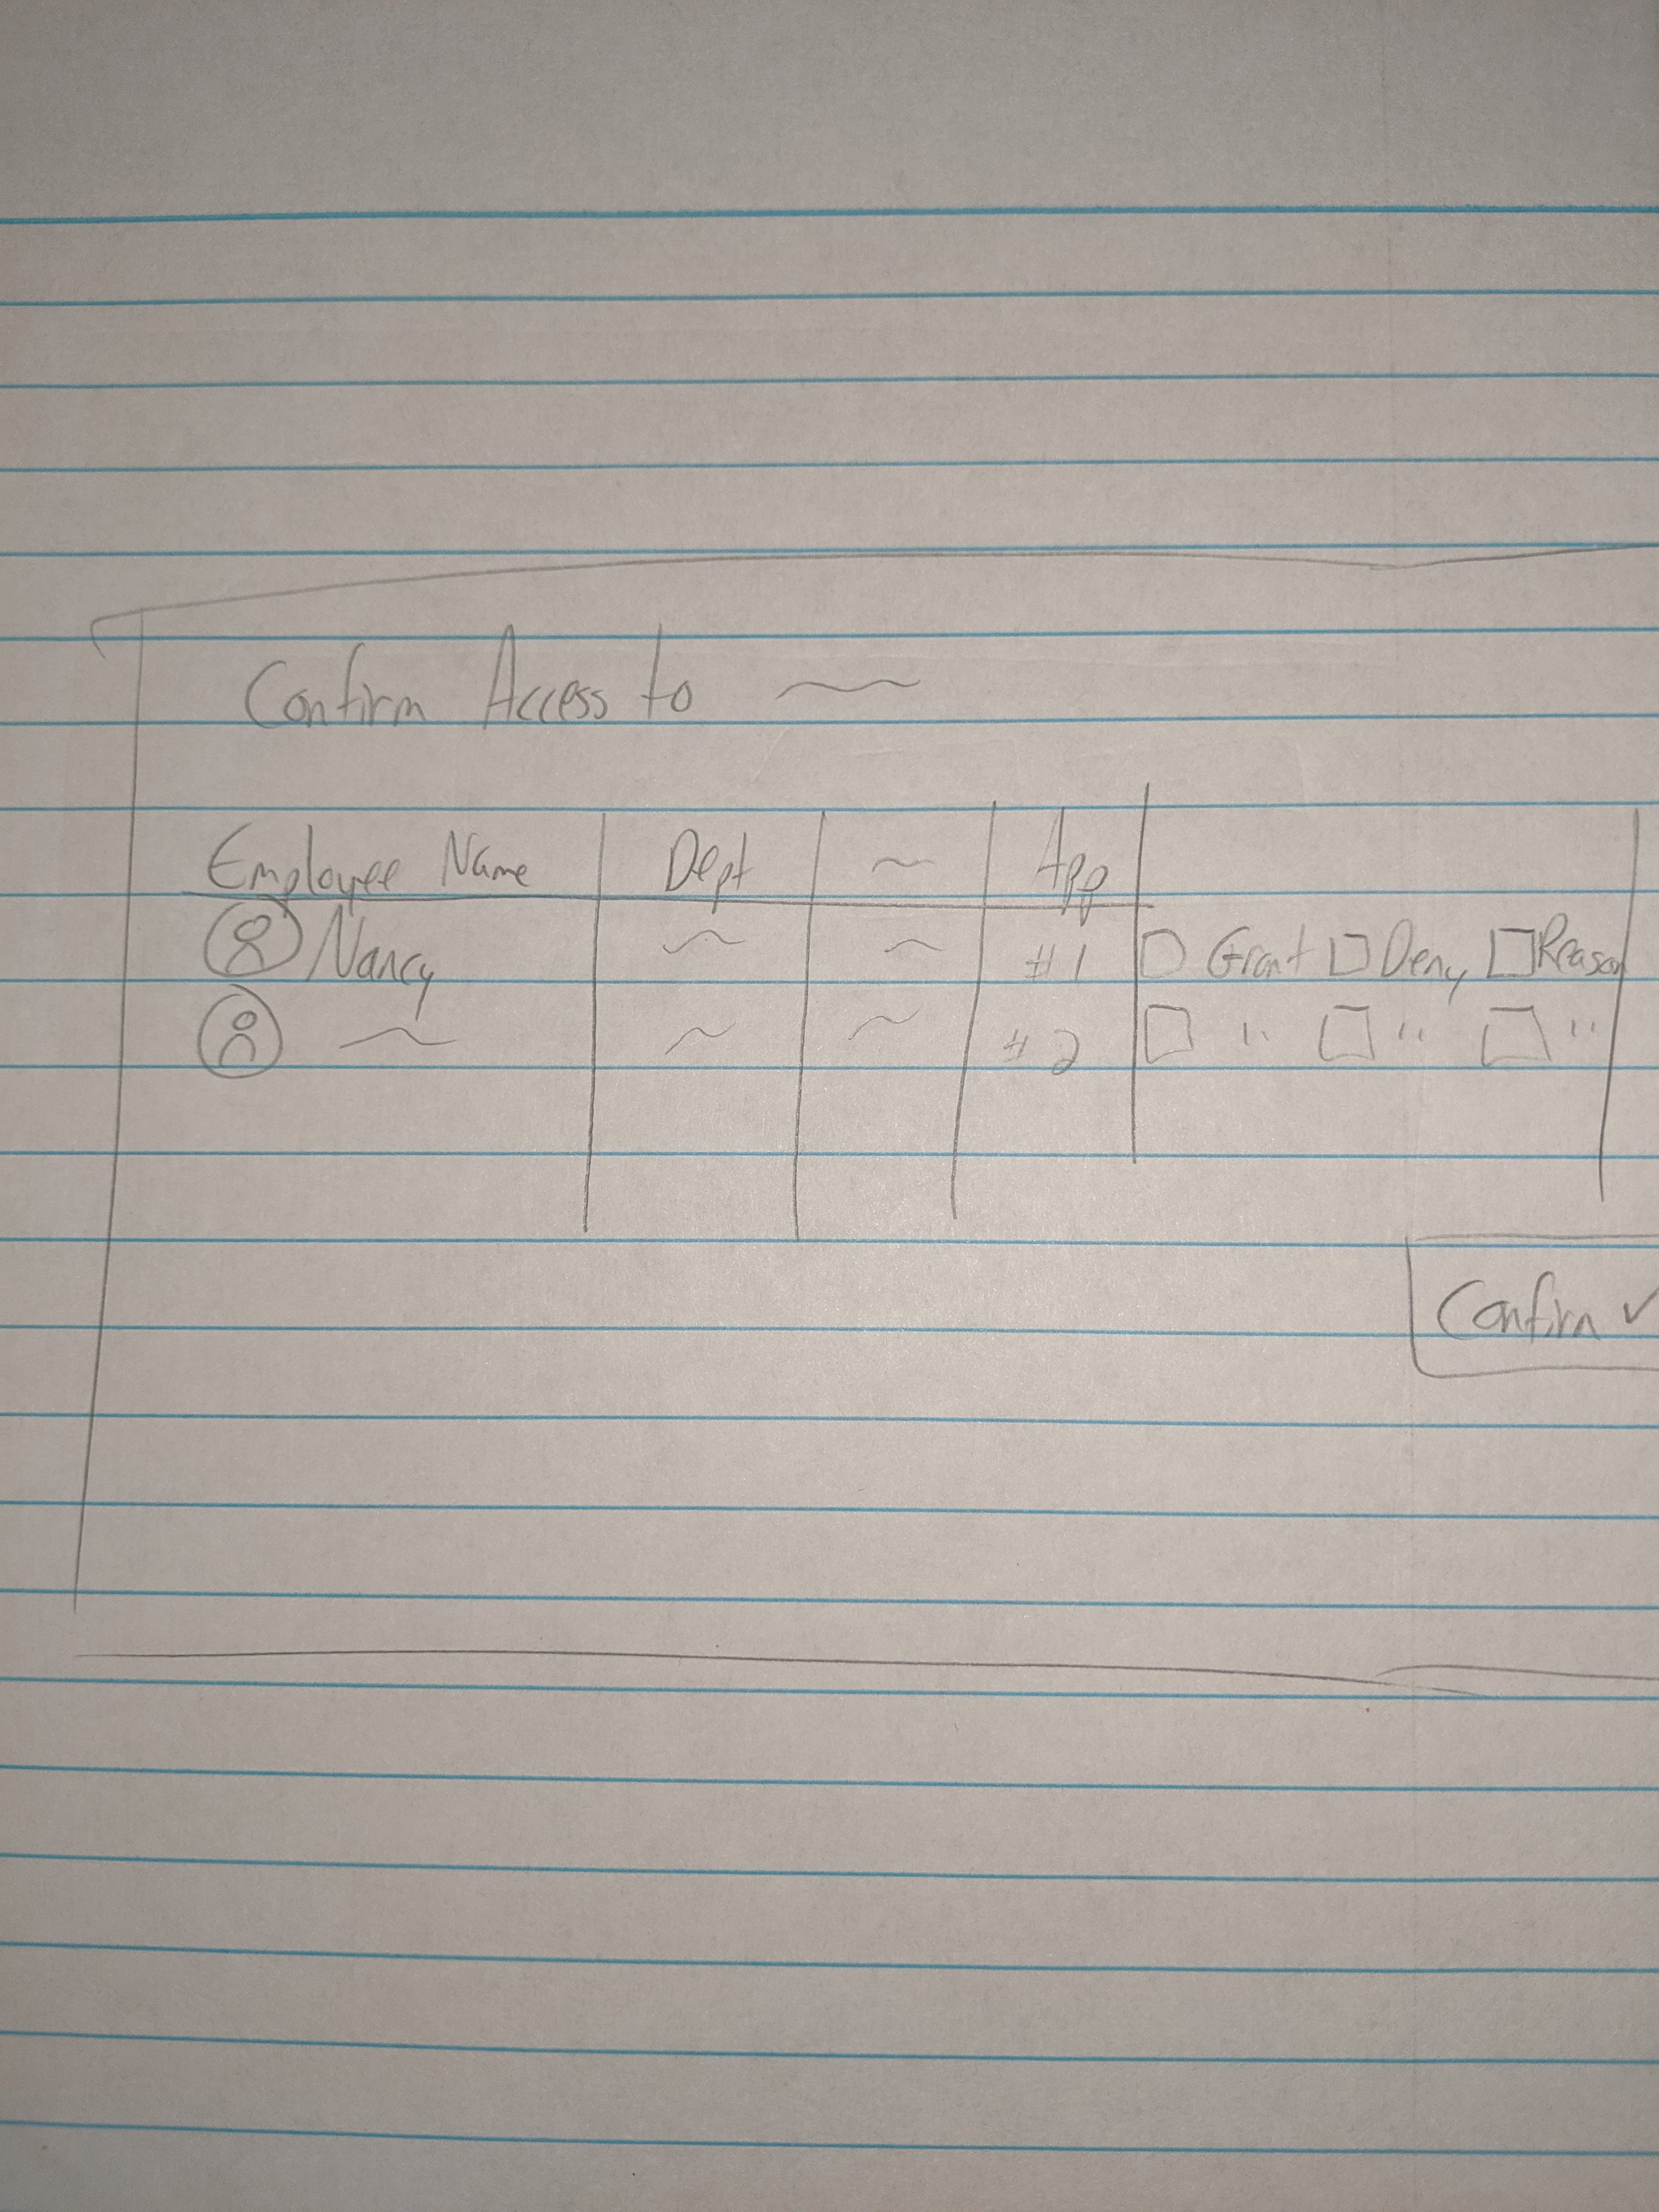 Confirm Access to
Employee Name Dept App
Nancy #1 Grant Deny Reason
#2 " " "
Confirm ✓